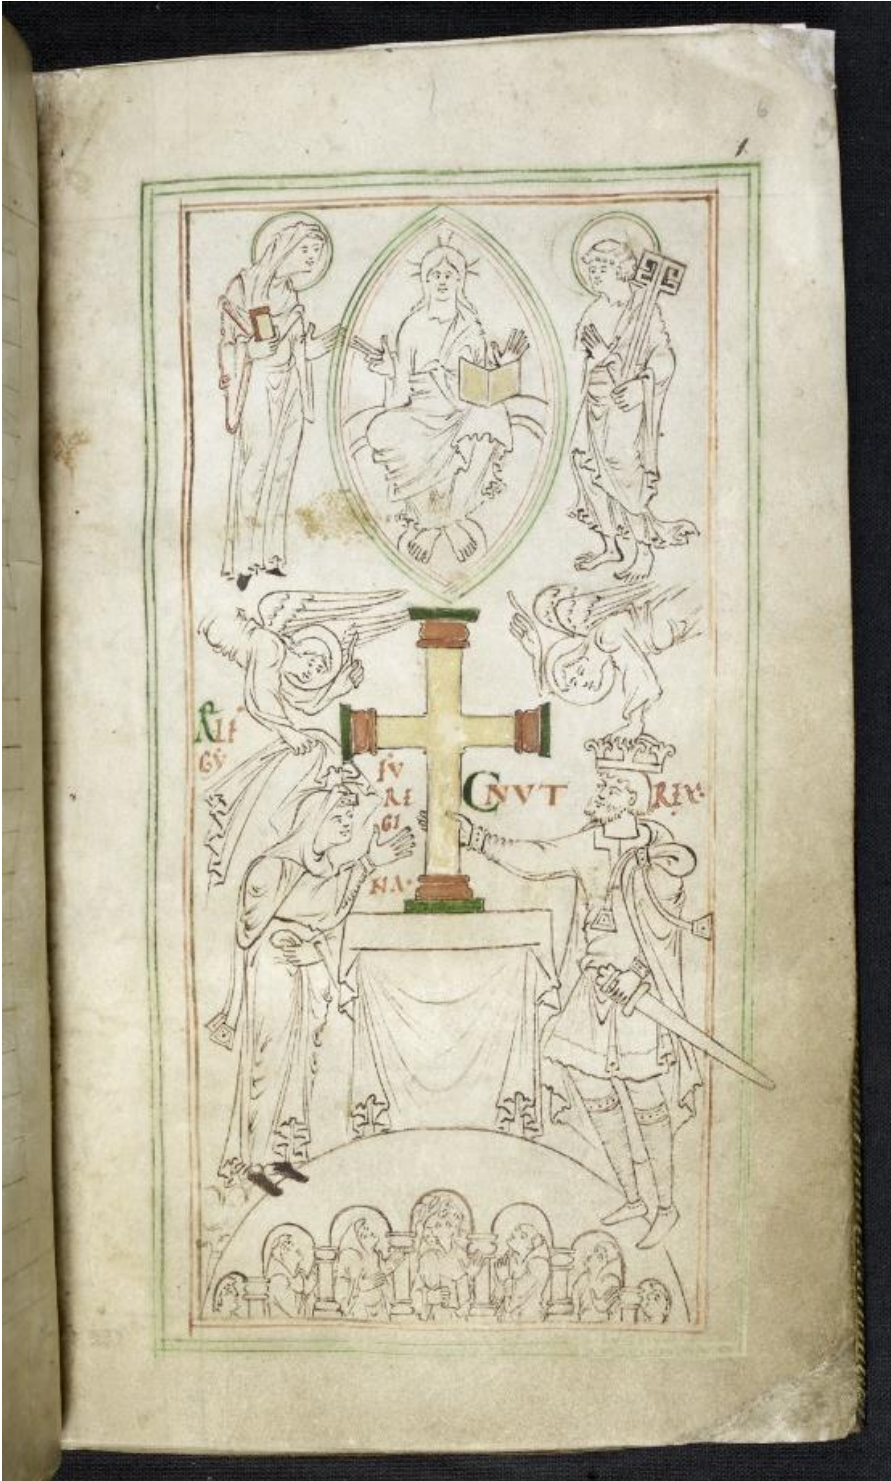 6
1.
ÆLF
GẎ
FV
RE
GI
NA·
CNVT REX: